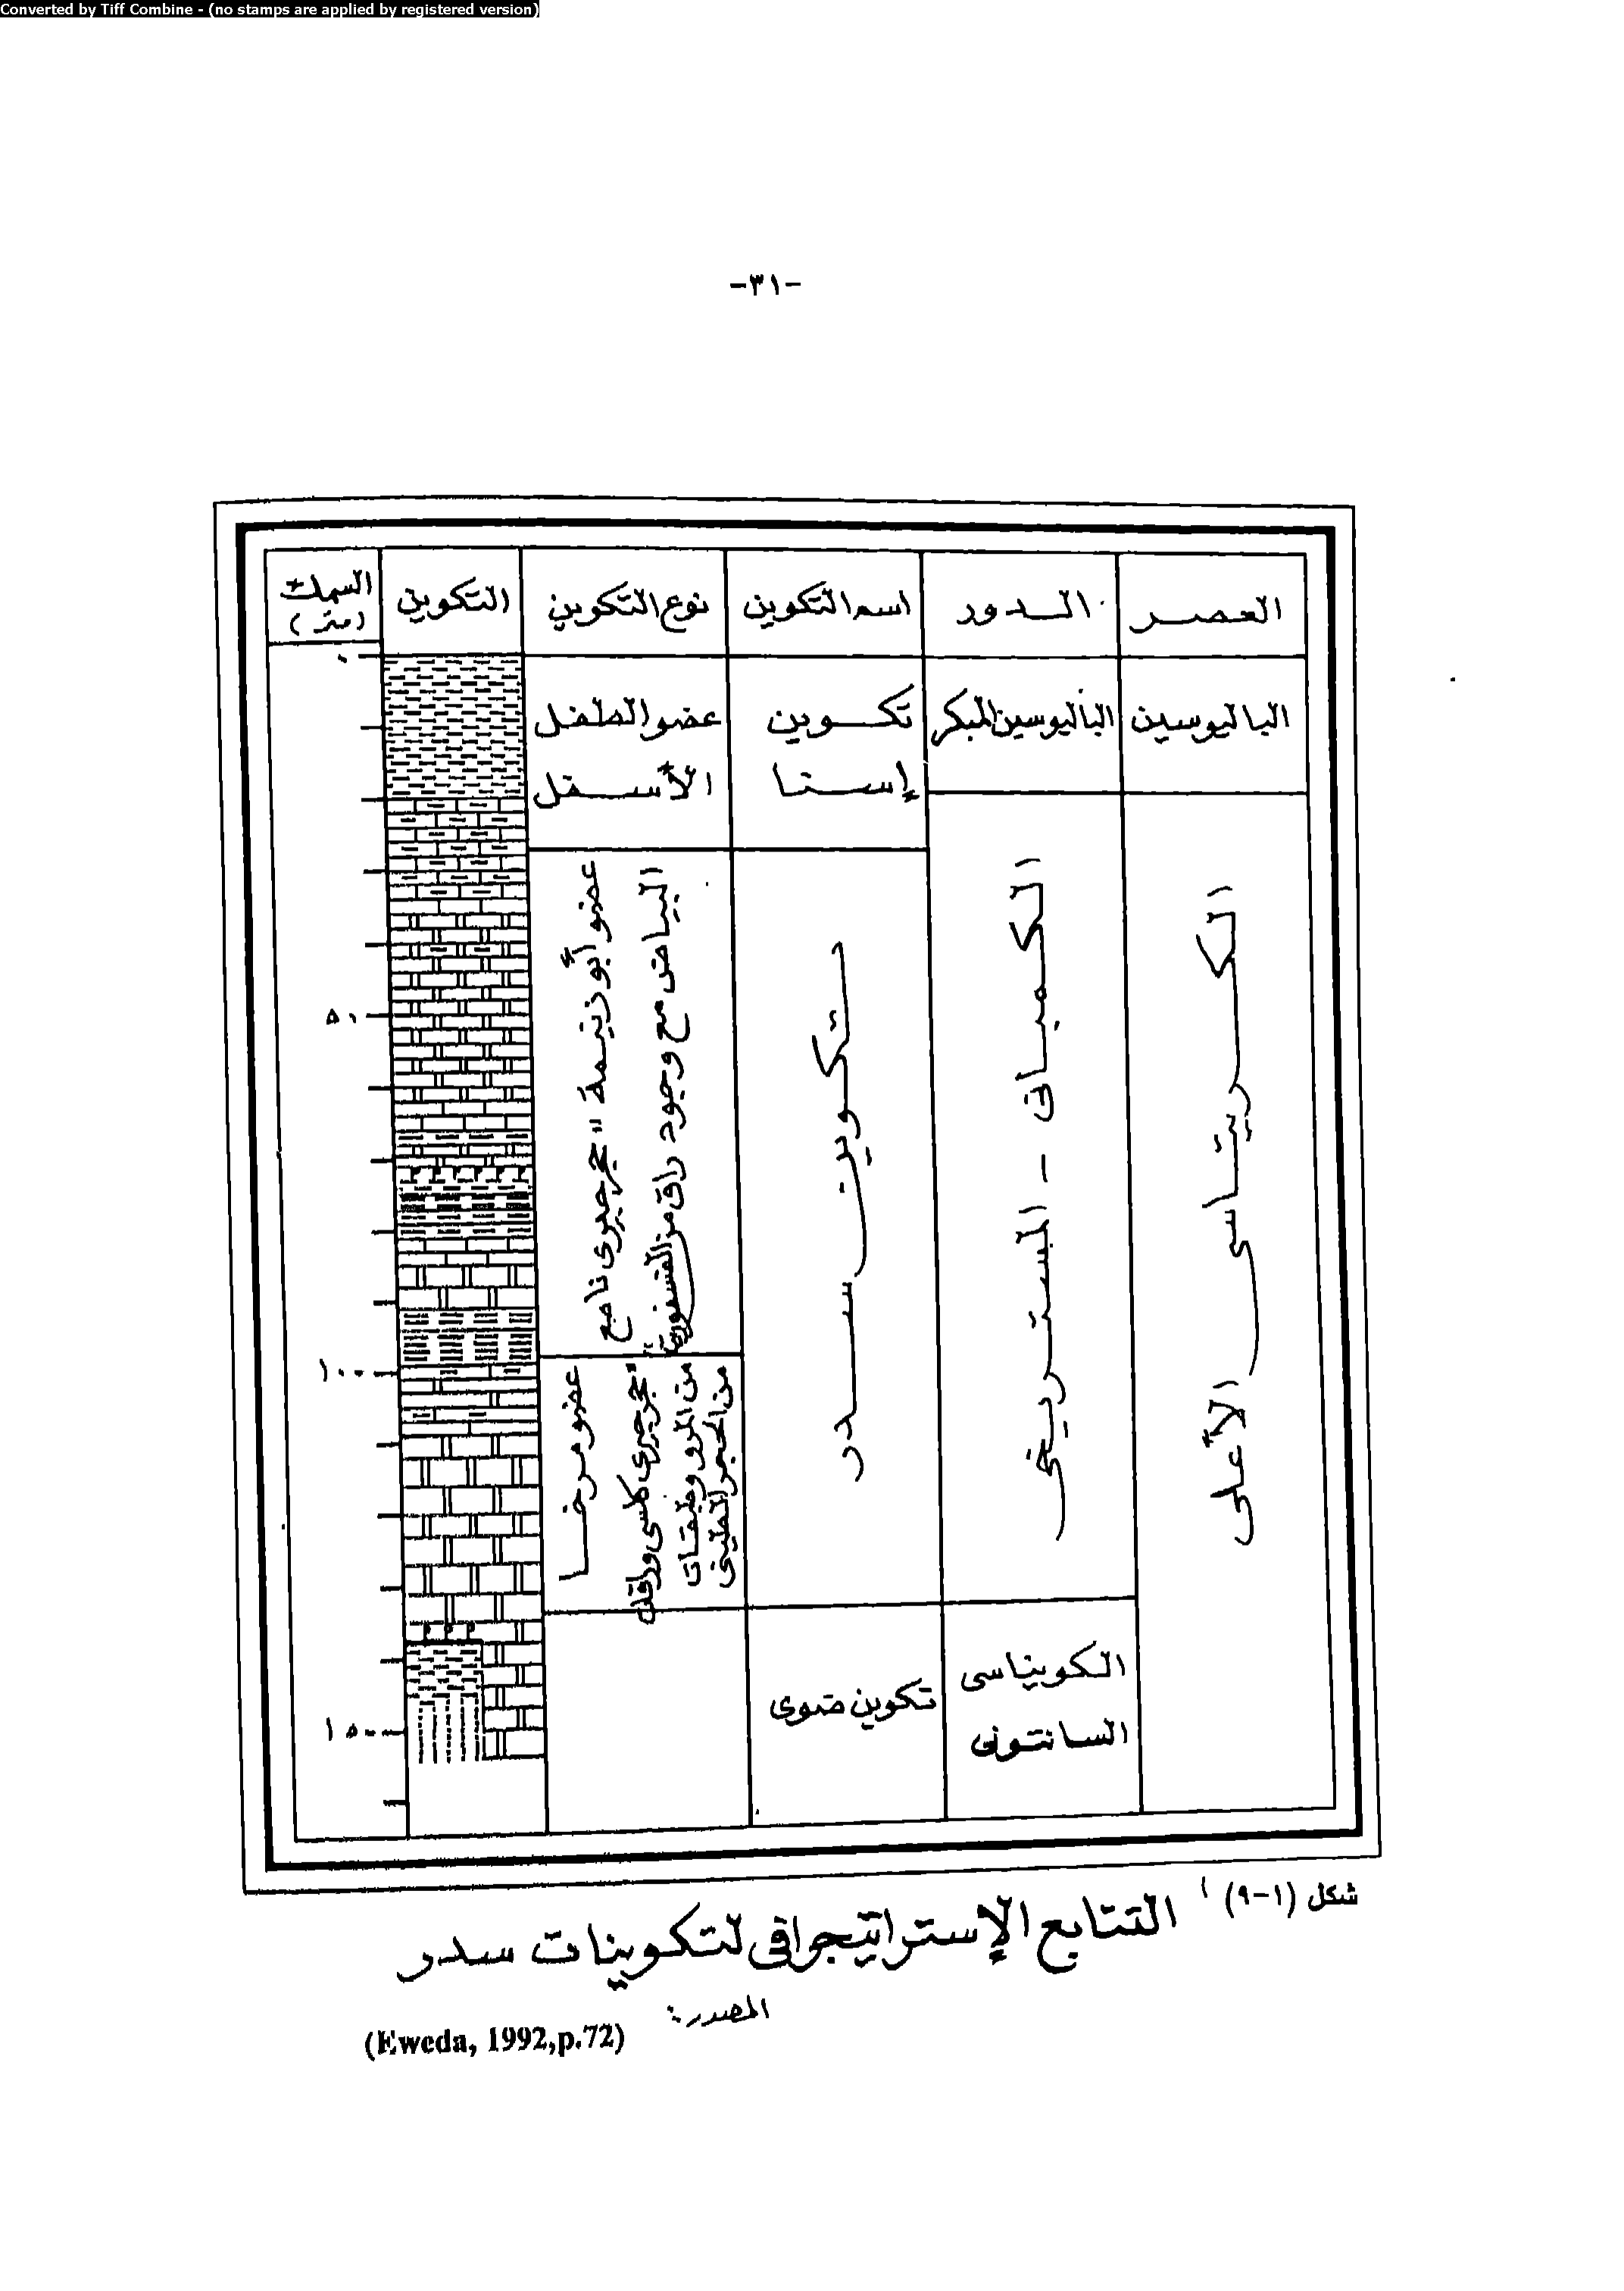 Converted by Tiff Combine - (no stamps are applied by registered version)
-٣١-
العصر
الدور
اسم التكوين
نوع التكوين
التكوين
السمك
(متر)
الباليوسين
الباليوسين المبكر
تكوين
إستا
عضو الطفل
الأسفل
الكريتاسى الأعلى
الكمبانى - المستريخى
تكوين سدر
عضو أبو زنيمة "حجر جيرى ناصع
البياض مع وجود راق من الفسفوريت"
عضو مرخا
"حجر جيرى كلسى وراقات
من المرو وطبقات
من الحجر الطينى
الكويناسى
السانتونى
تكوين ضوى
٠
٥٠
١٠٠
١٥٠
شكل (١-٩) التتابع الإستراتيجرافى لتكوينات سدر
المصدر:
(Eweda, 1992,p.72)